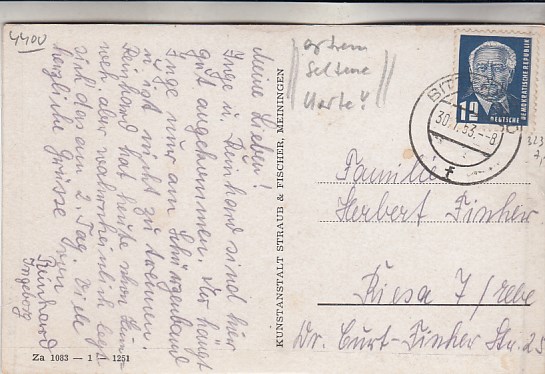 4400
Meine Lieben!
Inge u. Reinhard sind hier
gut angekommen. Nur hängt
Inge nur am Schürzenband
u. ist nicht zu trennen.
Reinhard hat heute schon
weh. aber wahrscheinlich legt
sich das am 2. Tag. Viele
herzliche Grüsse von
Reinhard
Ingeborg
Za 1083 — 1 1251
KUNSTANSTALT STRAUB & FISCHER, MEININGEN
extrem
Seltene
Karte!
DEUTSCHE DEMOKRATISCHE REPUBLIK
12
DEUTSCHE
30. 53.-8
Familie
Herbert Finker
Riesa 7/Elbe
Dr. Curt-Finker Str. 25